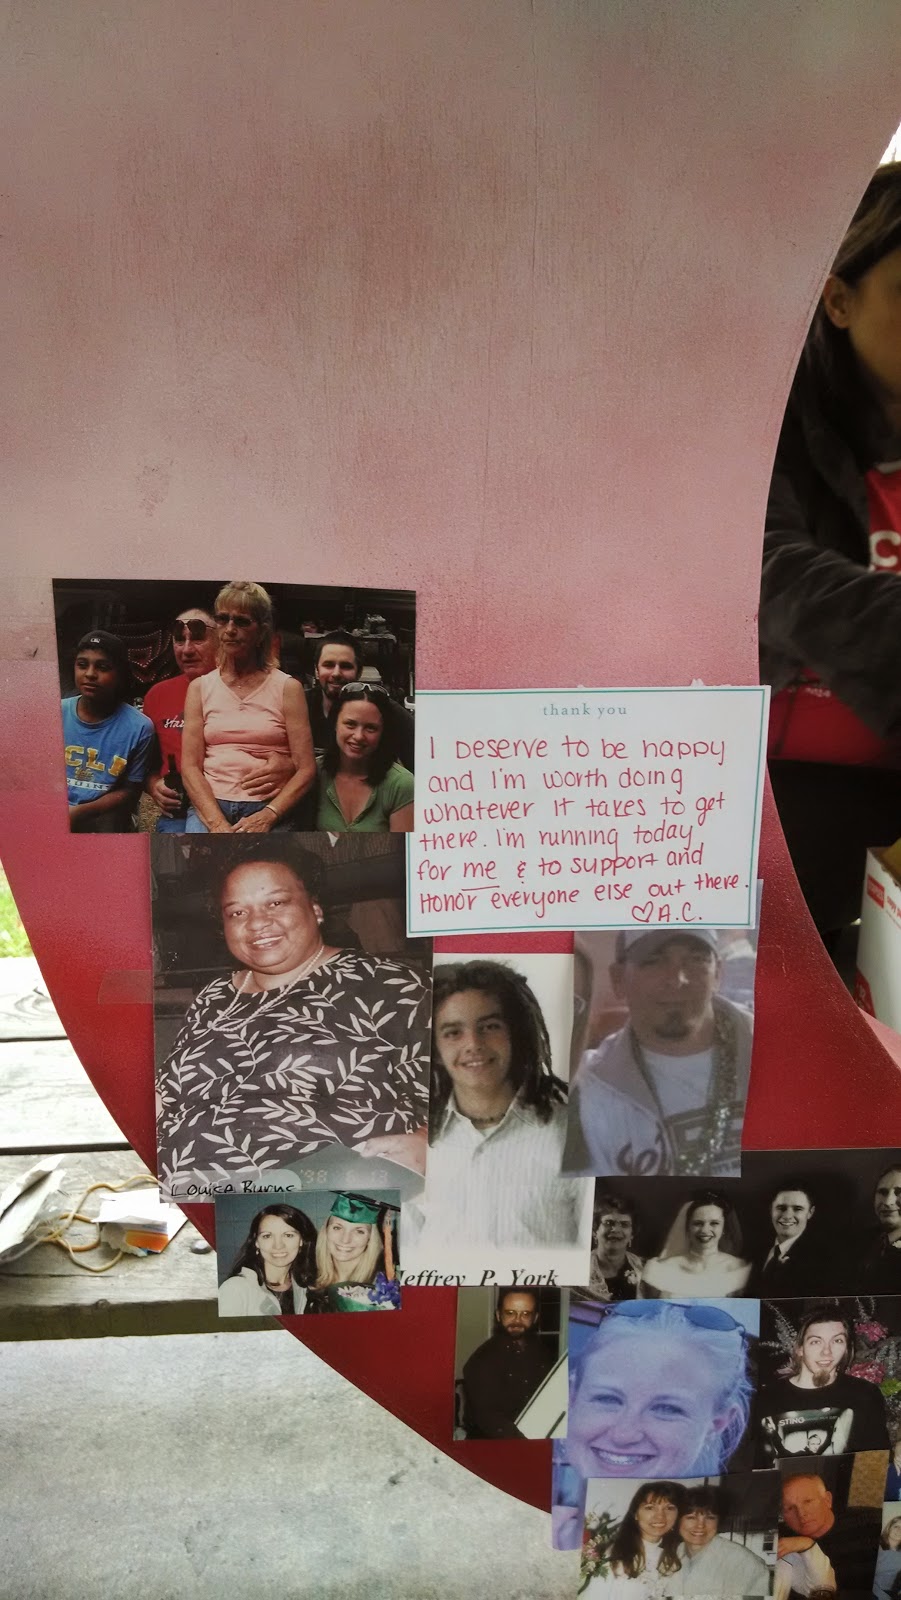 thank you
I DESERVE to be happy
and I'm worth doing
whatever it takes to get
there. I'm running today
for me & to support and
Honor everyone else out there.
♡A.C.
Louise Burns
Jeffrey P. York
STING